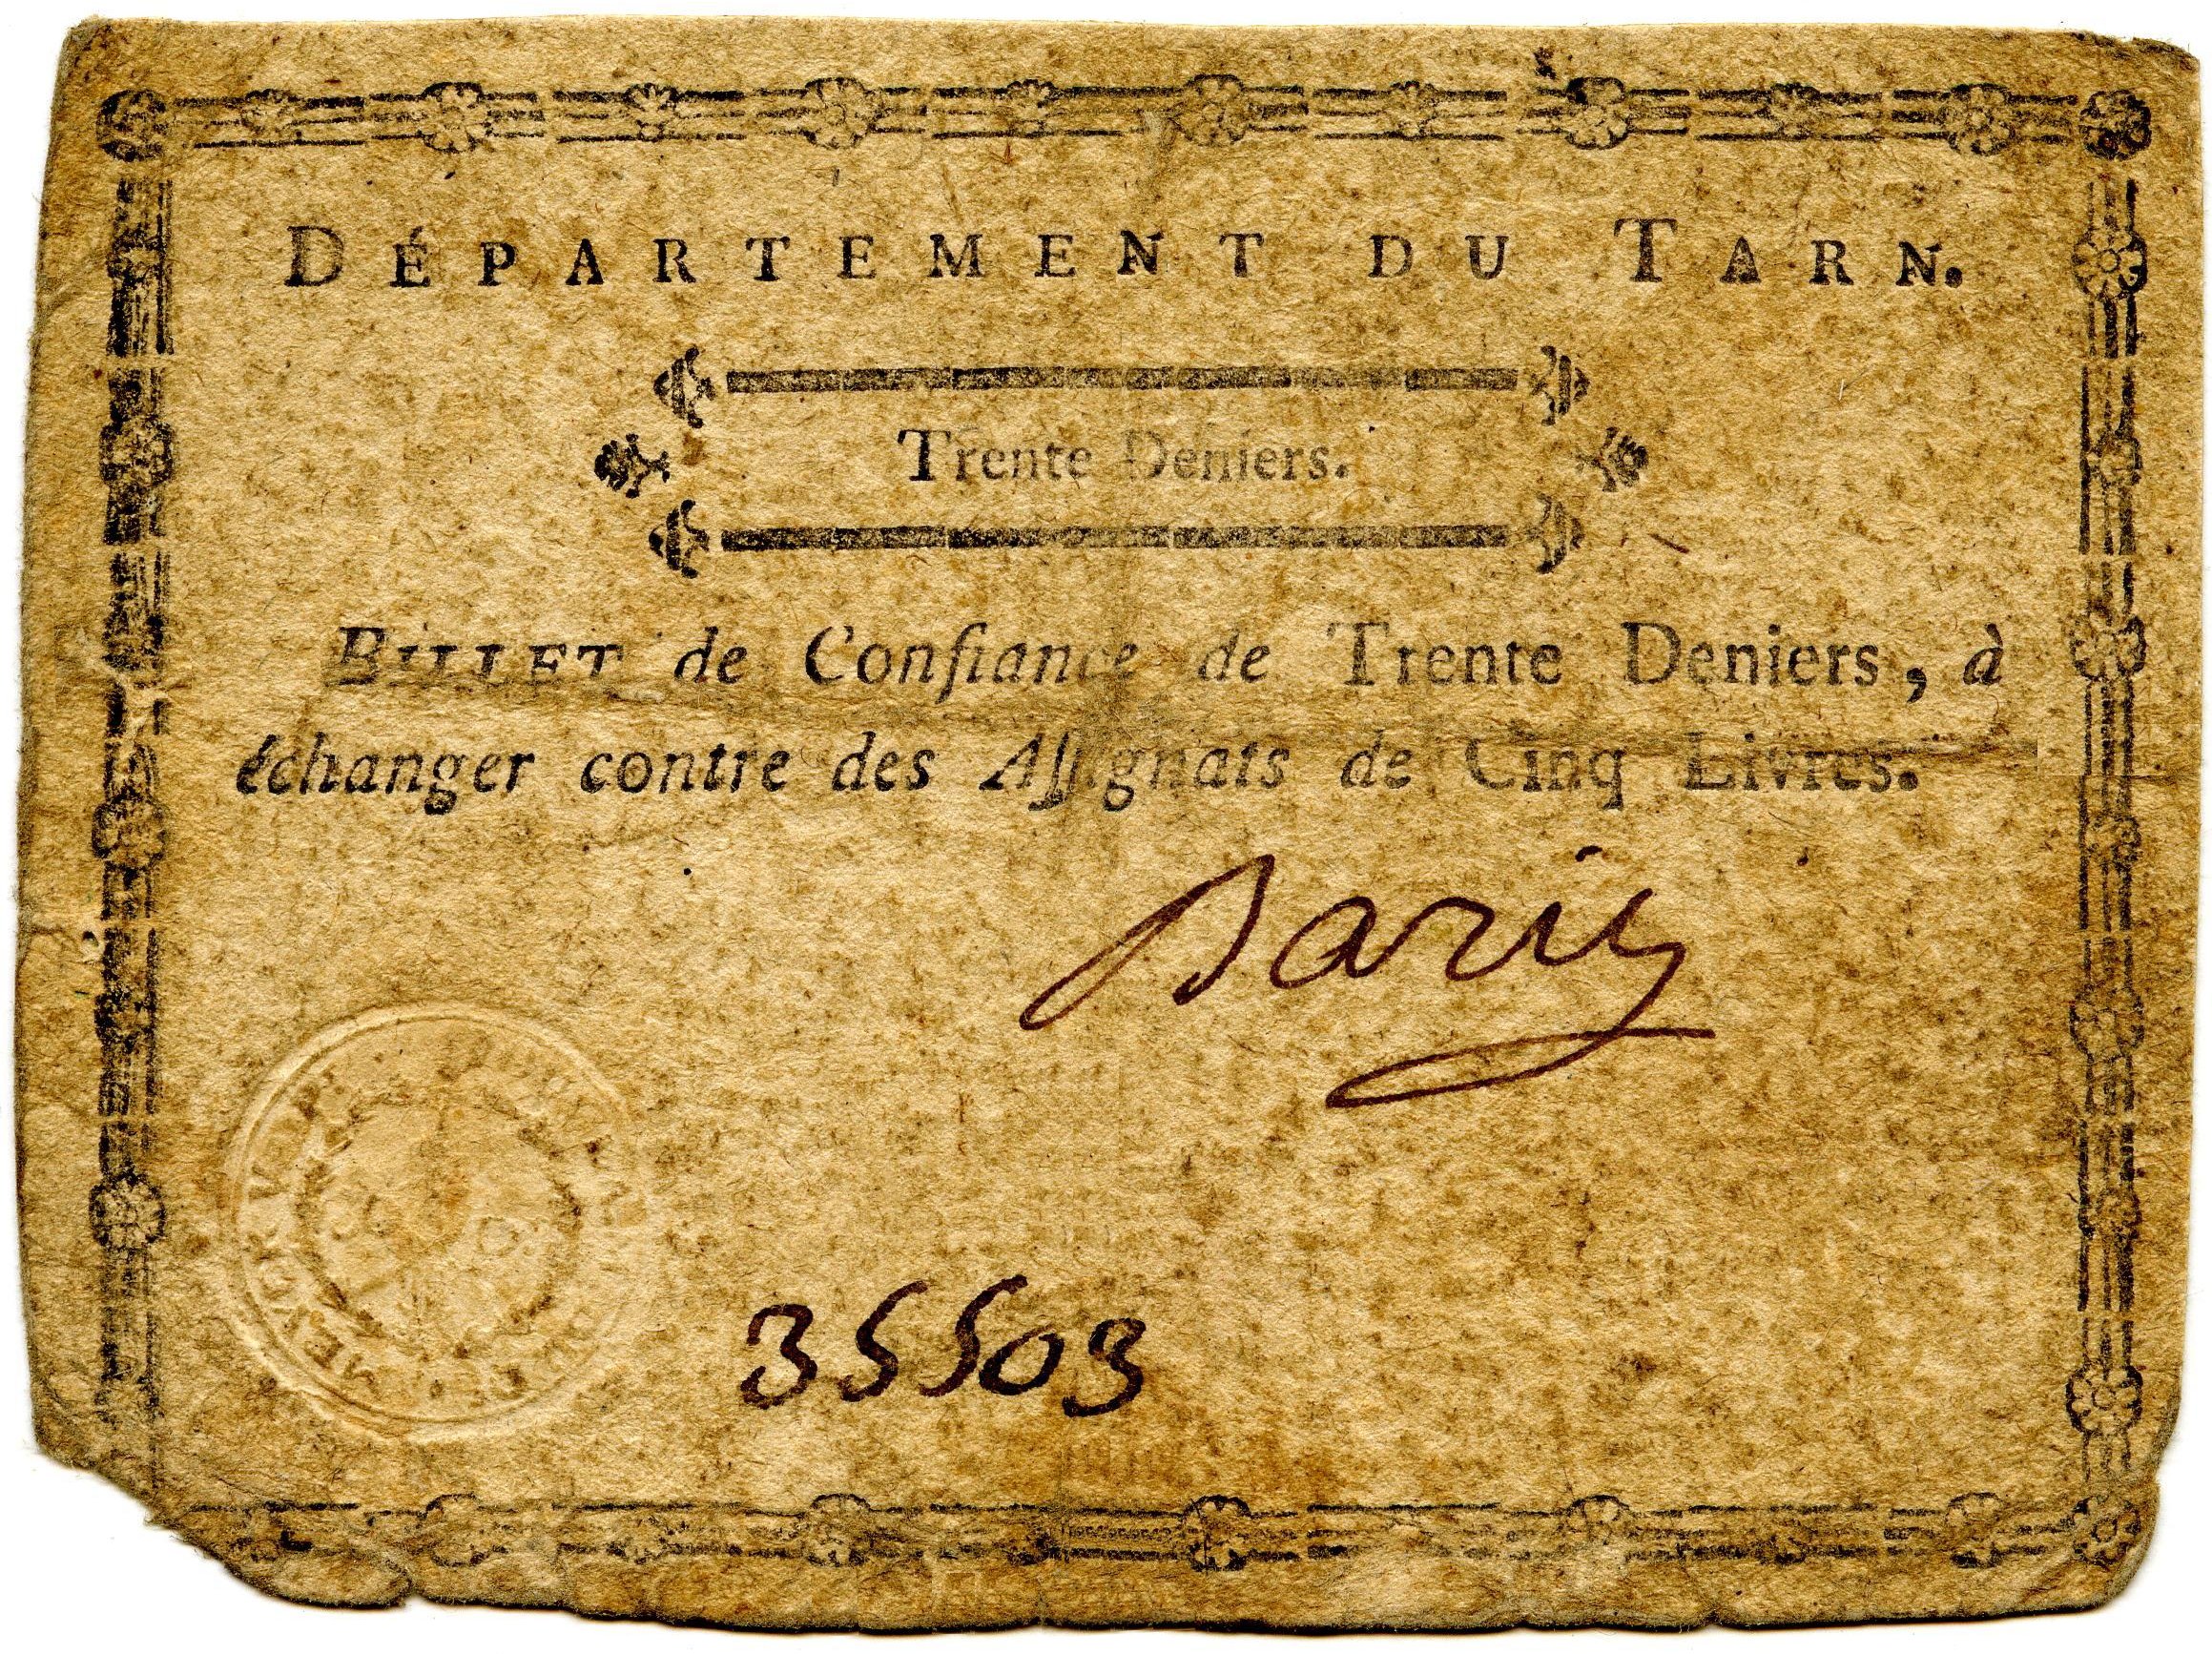 DÉPARTEMENT DU TARN.
Trente Deniers.
BILLET de Confiance de Trente Deniers, à
échanger contre des Aſſignats de Cinq Livres.
35503